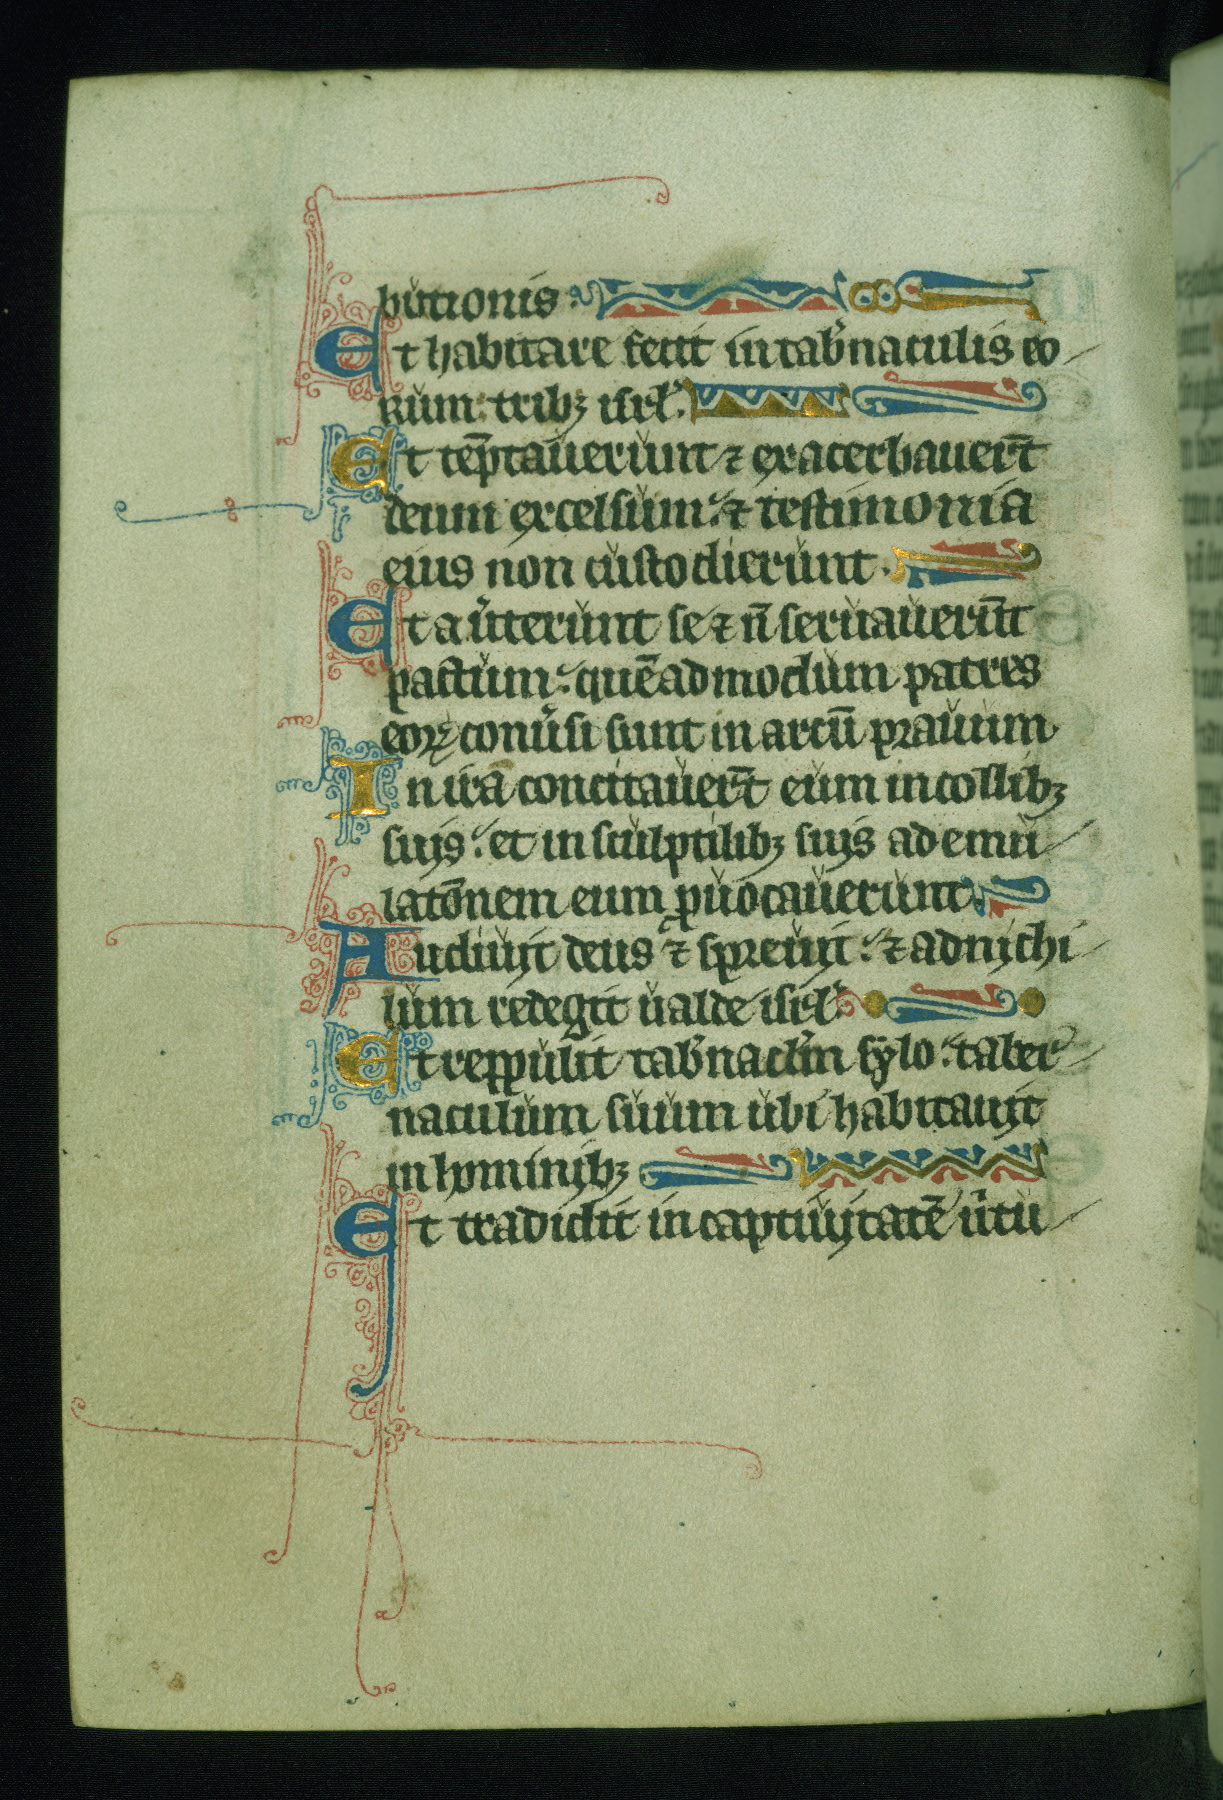 butionis
Et habitare fecit in tab̾naculis eo
rum: tribꝫ isrl̾.
Et te̅ptauerunt ⁊ exacerbauer̅t
deum excelsum: ⁊ testimonia
eius non custodierunt.
Et au̾terunt se ⁊ n̅ seruauerun̅t
pactum: que̅admodum patres
eoꝝ conu̾si sunt in arcu̅ prauum.
In ira̅ concitauer̅t eum in collibꝫ
suis: et in sculptilibꝫ suis ad emu
lato̅nem eum ꝓuocauerunt.
Audiuit deus ⁊ spreuit: ⁊ ad nichi
lum redegit ualde isrl̾
Et reppulit tab̾naclm̅ sylo: taber
naculum suum ubi habitauit
in hominibꝫ
Et tradidit in captiuitate̅ u̾tu